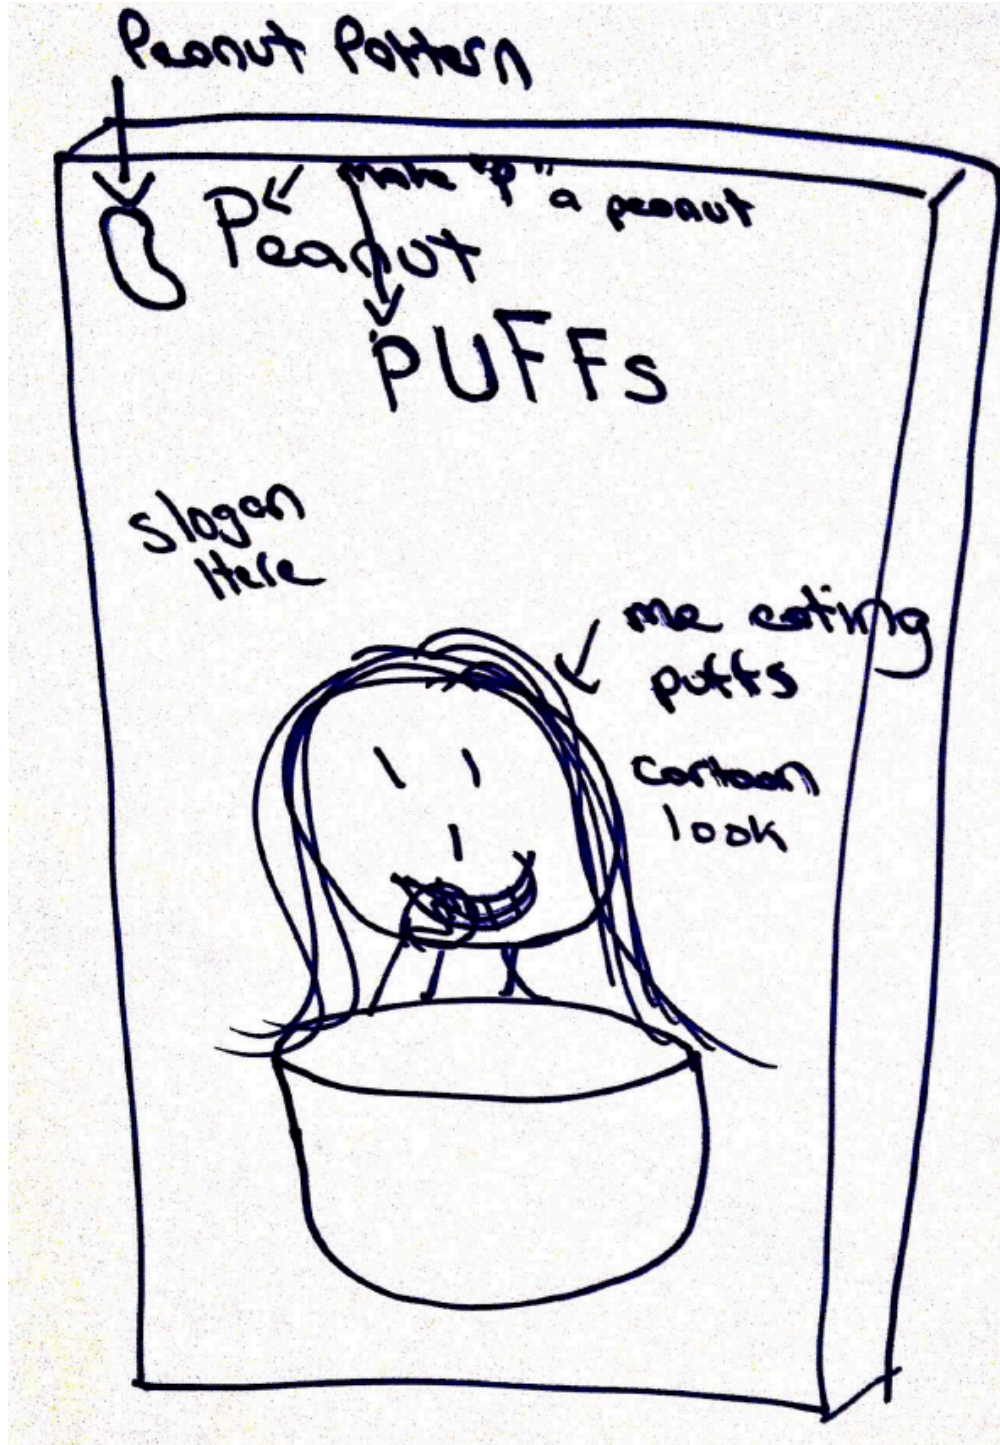 Peanut Pattern
make "P" a peanut
Peanut
PUFFs
slogan
Here
me eating
puffs
cartoon
look